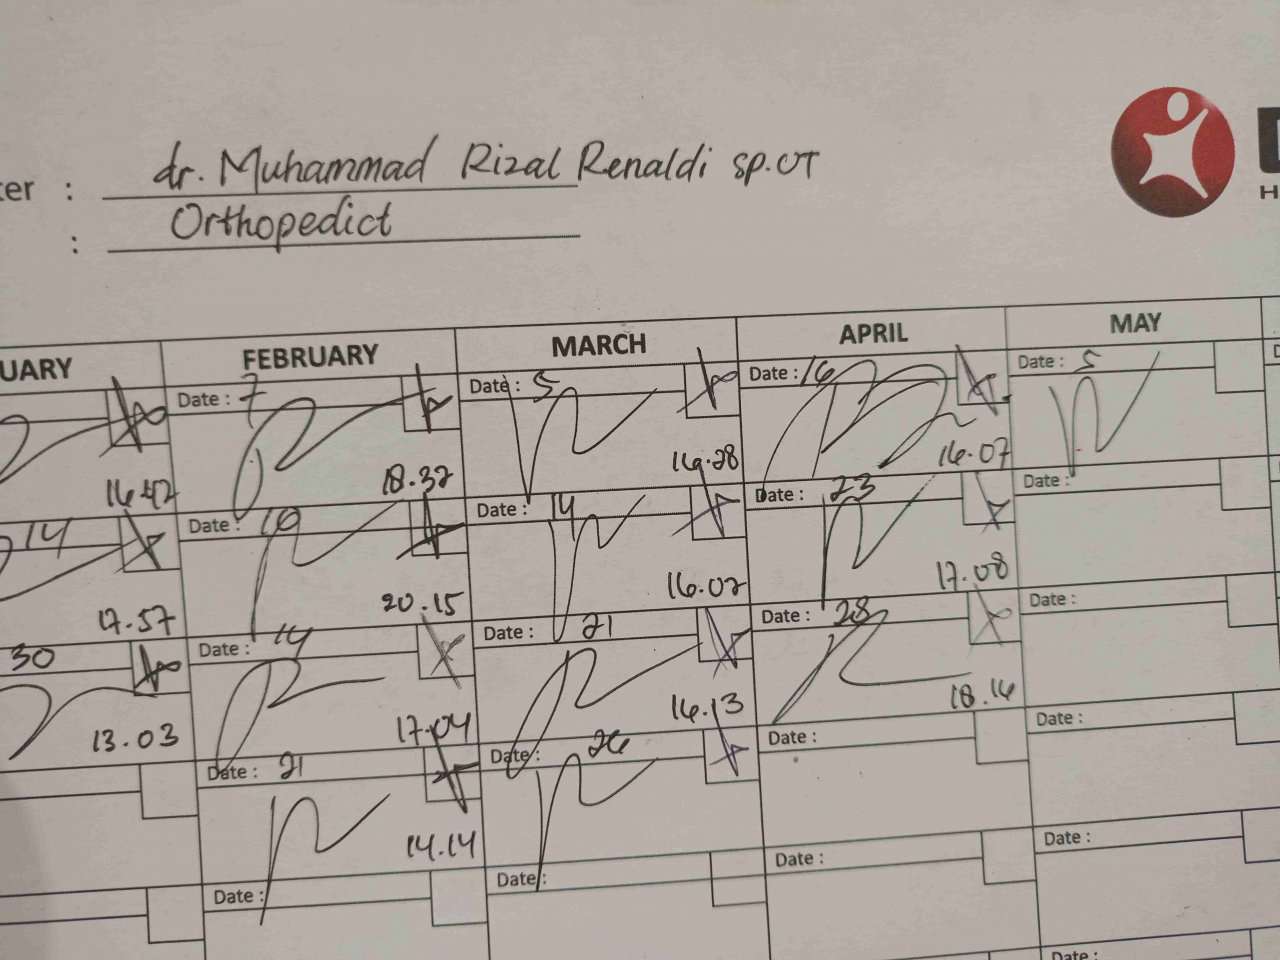 ter : dr. Muhammad Rizal Renaldi sp.OT
: Orthopedict
UARY FEBRUARY MARCH APRIL MAY
Date : 7 Date : 5 Date : 16 Date : 5
16.42 18.32 16.28 16.07
14 Date : 10 Date : 14 Date : 23 Date :
17.57 20.15 16.02 17.08
30 Date : 14 Date : 21 Date : 28 Date :
13.03 17.04 16.13 18.16
Date : 21 Date : 26 Date : Date :
14.14
Date : Date : Date : Date :
Date :